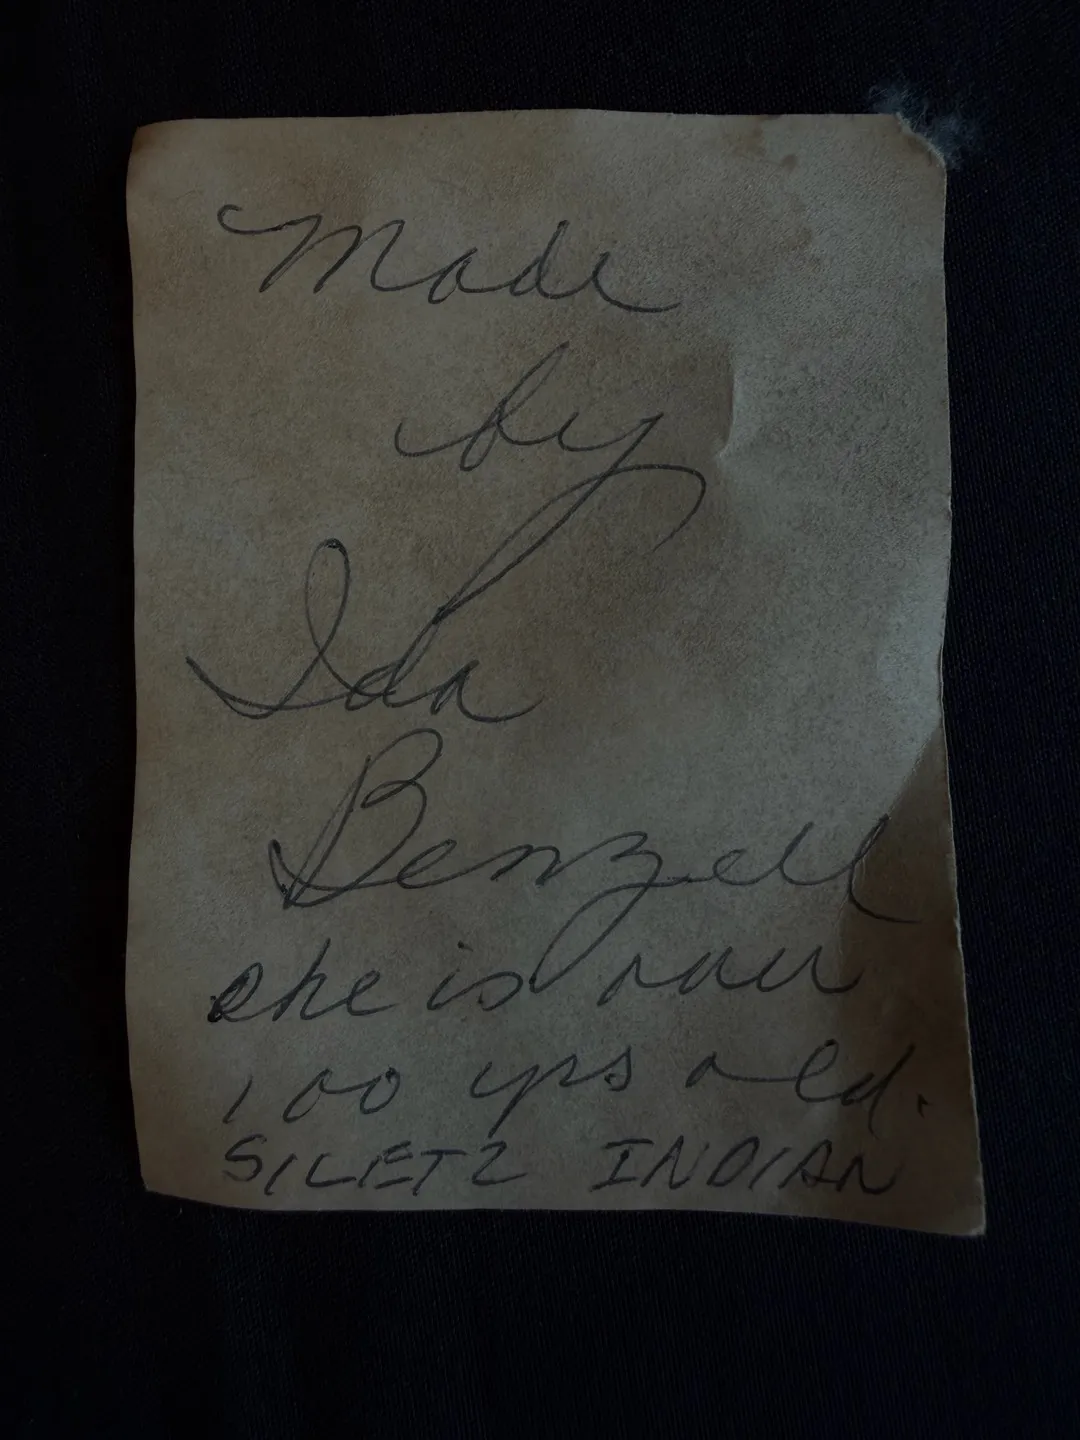 Made
by
Ida
Benzell
she is over
100 yrs old.
SILETZ INDIAN